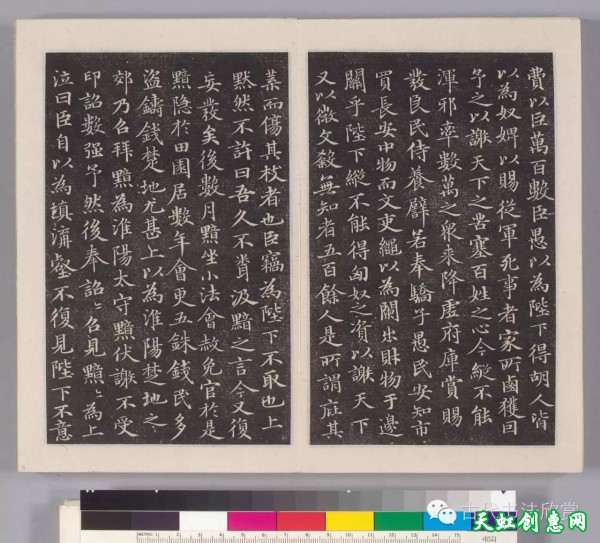 費以臣萬百數臣愚以為陛下得胡人皆
以為奴婢以賜從軍死事者家所鹵獲因
予之以謝天下之苦塞百姓之心今縱不能
渾邪率數萬之衆来降虛府庫賞賜
發良民侍養譬若奉驕子愚民安知市
買長安中物而文吏繩以為闌出財物于邊
關乎陛下縱不能得匈奴之資以謝天下
又以微文殺無知者五百餘人是所謂庇其
葉而傷其枝者也臣竊為陛下不取也上
默然不許曰吾久不聞汲黯之言今又復
妄發矣後數月黯坐小法會赦免官於是
黯隐於田園居數年會更五銖錢民多
盜鑄錢楚地尤甚上以為淮陽楚地之
郊乃召拜黯為淮陽太守黯伏謝不受
印詔數强予然後奉詔〻召見黯〻為上
泣曰臣自以為填溝壑不復見陛下不意
古代书法欣赏
天虹创惠网